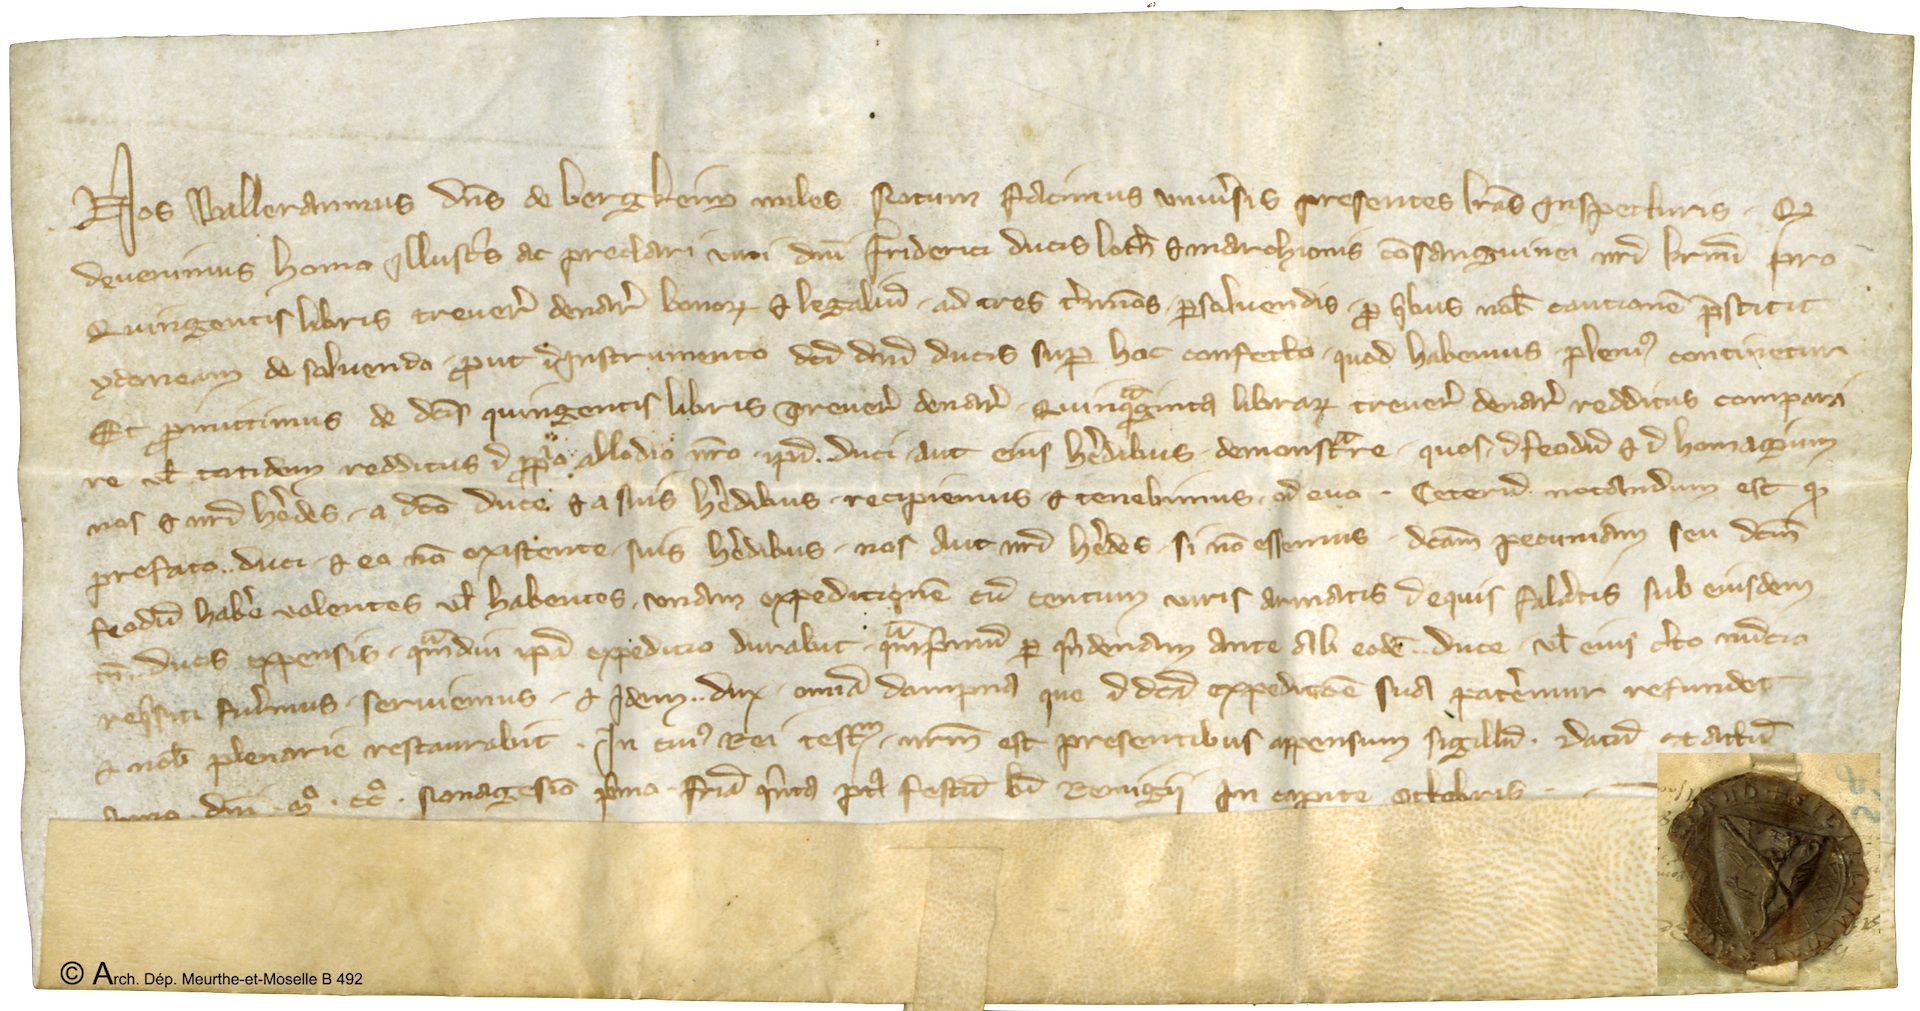 Nos Wallerammus dn̄s de bergkeim miles Notum facimus univ̓sis presentes lr̄as Inspecturis . Q
devenimus homo Illust̓s ac preclari viri dn̄i Friderici ducis loth̄ ⁊ marchionis cōsanguinei nr̄i kr̄mi pro
Quingentis libris trever̓ denar̓ bonoꝝ ⁊ legaliū . ad tres t̓minos . ꝑsolvendis . ꝓ q̓bus nob̄ cautionē p̄stitit
ydoneam de solvendo . ꝓut ī Instrumento dc̄i dn̄i ducis suꝑ hoc confecto . quod habemus . pleniꝰ continetur
Et ꝓmittimus de dc̄is quingentis libris Trever̓ denar̓ . Quinq̄ginta libraꝝ trever̓ denar̓ redditus compara
re vl̄ totidem redditus ī ꝓp̓o allodio nr̄o ip̄i .. duci . aut eius h̓edibus . demonstͣre . quos . ī feodū ⁊ ī homagium
nos ⁊ nr̄i h̓edes . a dc̄o duce ⁊ a suis h̓edibus . recipiemus ⁊ tenebimus . ī evo . Ceterū notandum est ꝙ
prefato .. duci . ⁊ eo nō existente . suis h̓edibus . nos aut nr̄i h̓edes . si nō essemus . dc̄am pecuniam seu dc̄m
feodū hab̓e volentes vl̄ habentes . unam expeditionē cū centum viris armatis ī equis faler̓tis sub eiusdem
.. ducis expensis . qͣmdiu ip̄a expeditio durabit . qͣmp̓mū ꝑ q̓ndenam ante ab eodē .. duce . vl̄ eius c̓to nūcio
req̓siti fu̓imus . serviemus . ⁊ Idem .. dux . omīa dampna que ī dc̄a expeditiōe sua patēmur refundet
⁊ nob̄ plenarie restaurabit . In cuiꝰ Rei testm̄ . nr̄m est presentibus appensum sigillū . Datū et actū
Anno . dn̄i . mͦ . ccͦ . Nonagesiō p̓mo . fr̄ia q̓nta pͭ festū b̄i Remigii In capite octobris .
© Arch. Dép. Meurthe-et-Moselle B 492